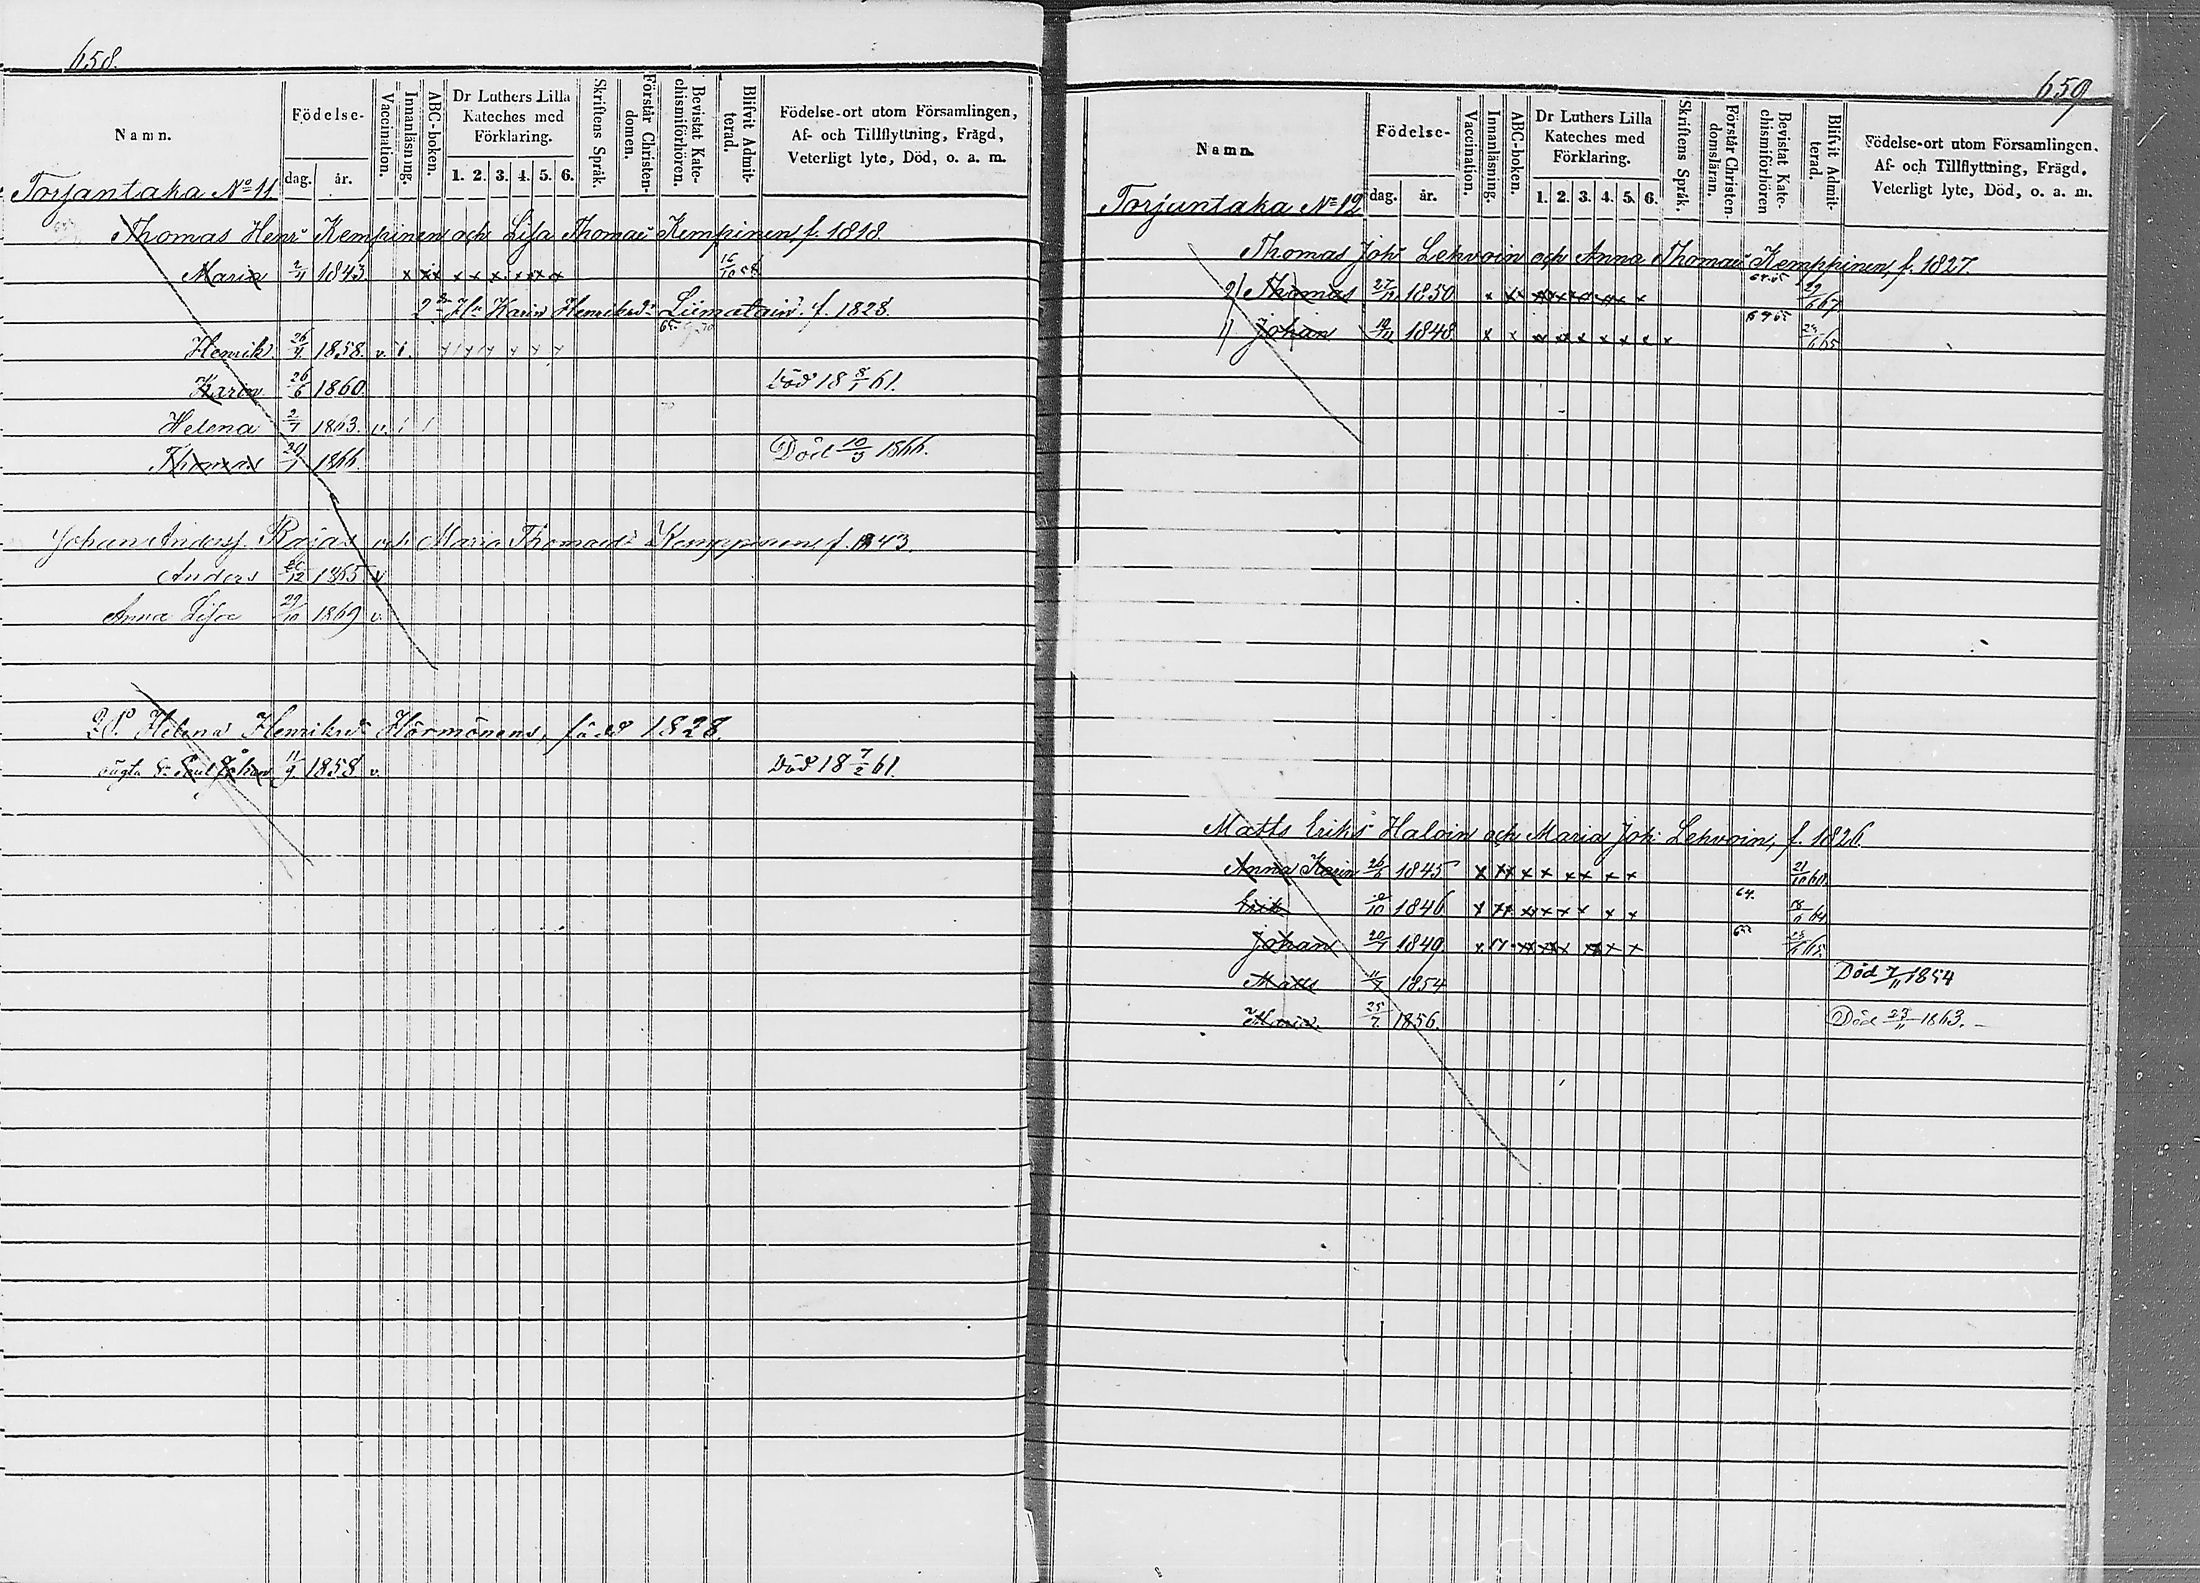 658.
Namn. Födelse- dag. år. Vaccination. Innanläsning. ABC-boken. Dr Luthers Lilla Kateches med Förklaring. 1. 2. 3. 4. 5. 6. Skriftens Språk. Förstår Christendomen. Bevistat Katechismiförhören. Blifvit Admitterad. Födelse-ort utom Församlingen, Af- och Tillflyttning, Frägd, Veterligt lyte, Död, o. a. m.
Torjantaka No 11
Thomas Henrs Kempinen och Lisa Thomasd. Kempinen, f. 1818.
Maria 2/11 1843. x xx x x x x x x
2dra H. Karin Henriksdr Liimatain. f. 1828.
Henrik 26/4 1858. v. i.
Karin 26/6 1860. Död 18 8/1 61.
Helena 2/7 1863. v. i
Thomas 29/1 1866. Död 10/5 1866.
Johan Andersf. Rajas och Maria Thomasdr Kempinen, f. 1843.
Anders 1865 v
Anna Lisa 29/10 1869 v.
Helena Henriksdr Hörmönens, född 1828.
oägta S. Paul Johan 11/9 1858 v. Död 18 7/2 61.
659
Namn. Födelse- dag. år. Vaccination. Innanläsning. ABC-boken. Dr Luthers Lilla Kateches med Förklaring. 1. 2. 3. 4. 5. 6. Skriftens Språk. Förstår Christendomsläran. Bevistat Katechismiförhören Blifvit Admitterad. Födelse-ort utom Församlingen. Af- och Tillflyttning, Frägd, Veterligt lyte, Död, o. a. m.
Torjantaka No 12
Thomas Johs Lehvoin och Anna Thomasd. Kemppinen, f. 1827.
2) Thomas 27/12 1850 x x x x x x x x 29/6 67.
1) Johan 1848 x x x x x x x x 65
Matts Eriks Haloin och Maria Johs Lehvoin, f. 1826.
Anna Karin 26/6 1845 x xx x x x x x x 21/10 60.
Erik 1846 x xx x x x x x x 64. 18/6 64
Johan 20/7 1849. 65.
Matts 11/7 1854 Död 7/11 1854
Maria 25/7 1856. Död 23/11 1863.